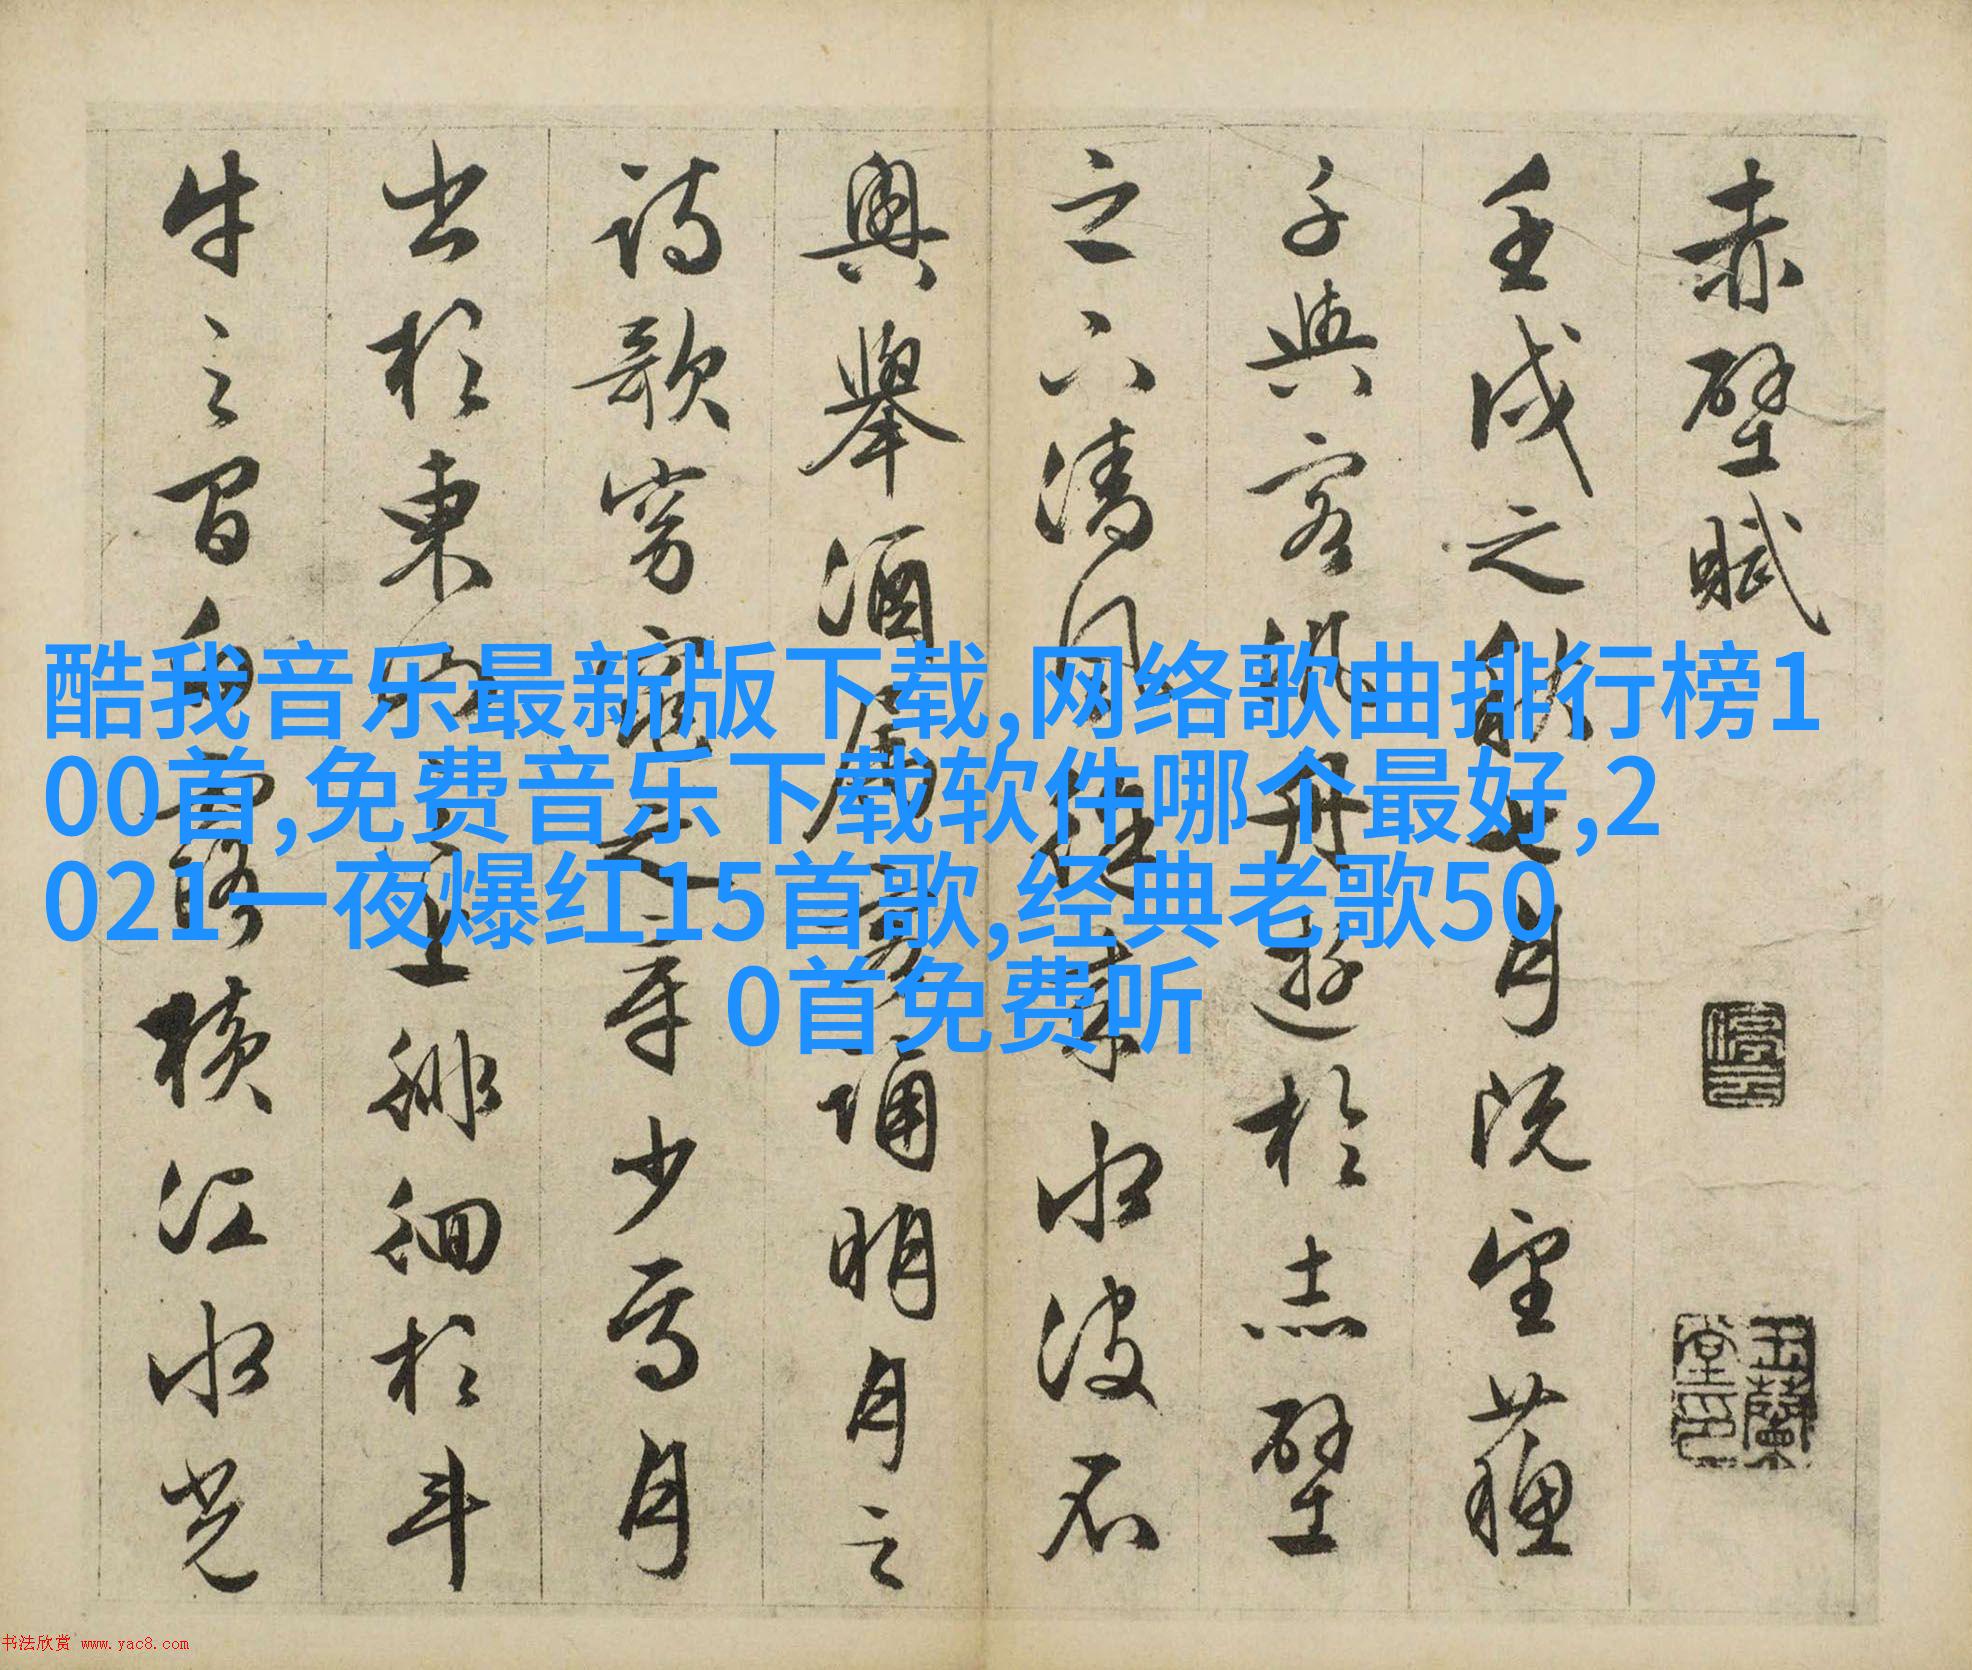 赤壁賦
壬戌之秋七月既望蘇
子與客汎舟遊於赤壁
之下清風徐來水波不
興舉酒屬客誦明月之
詩歌窈窕之章少焉月
出於東山之上徘徊於斗
牛之間白露橫江水光
停云
玉蘭堂印
酷我音乐最新版下载,网络歌曲排行榜1
00首,免费音乐下载软件哪个最好,2
021一夜爆红15首歌,经典老歌50
0首免费听
书法欣赏 www.yac8.com